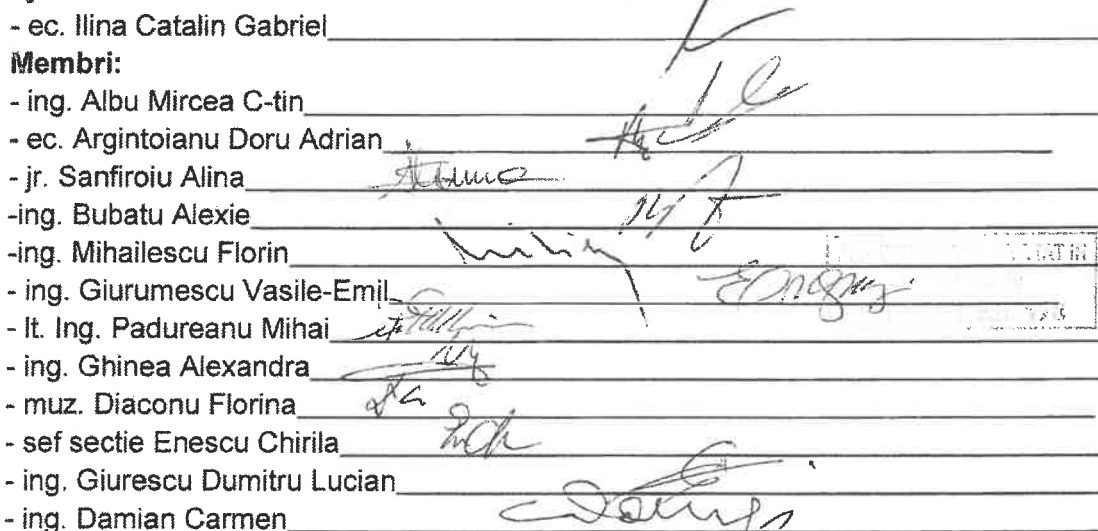 - ec. Ilina Catalin Gabriel
Membri:
- ing. Albu Mircea C-tin
- ec. Argintoianu Doru Adrian
- jr. Sanfiroiu Alina
-ing. Bubatu Alexie
-ing. Mihailescu Florin
- ing. Giurumescu Vasile-Emil
- lt. Ing. Padureanu Mihai
- ing. Ghinea Alexandra
- muz. Diaconu Florina
- sef sectie Enescu Chirila
- ing. Giurescu Dumitru Lucian
- ing. Damian Carmen